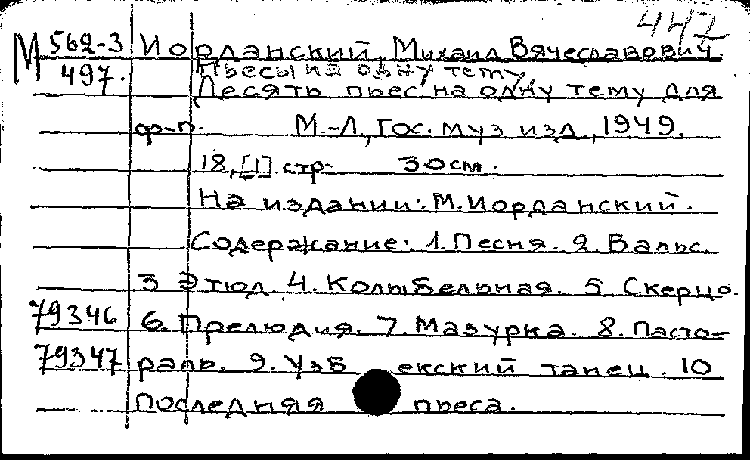 447
М 562-3 Иорданский, Михаил Вячеславович.
497. Пьесы на одну тему,
Десять пьес на одну тему для
ф-п. М.-Л., Гос. муз изд., 1949.
18, [1] стр. 30 см.
На издании: М. Иорданский.
Содержание: 1. Песня. 2. Вальс.
3 Этюд. 4. Колыбельная. 5. Скерцо.
79346 6. Прелюдия. 7. Мазурка. 8. Пасто-
79347 раль. 9. Узбекский танец. 10
Последняя пьеса.